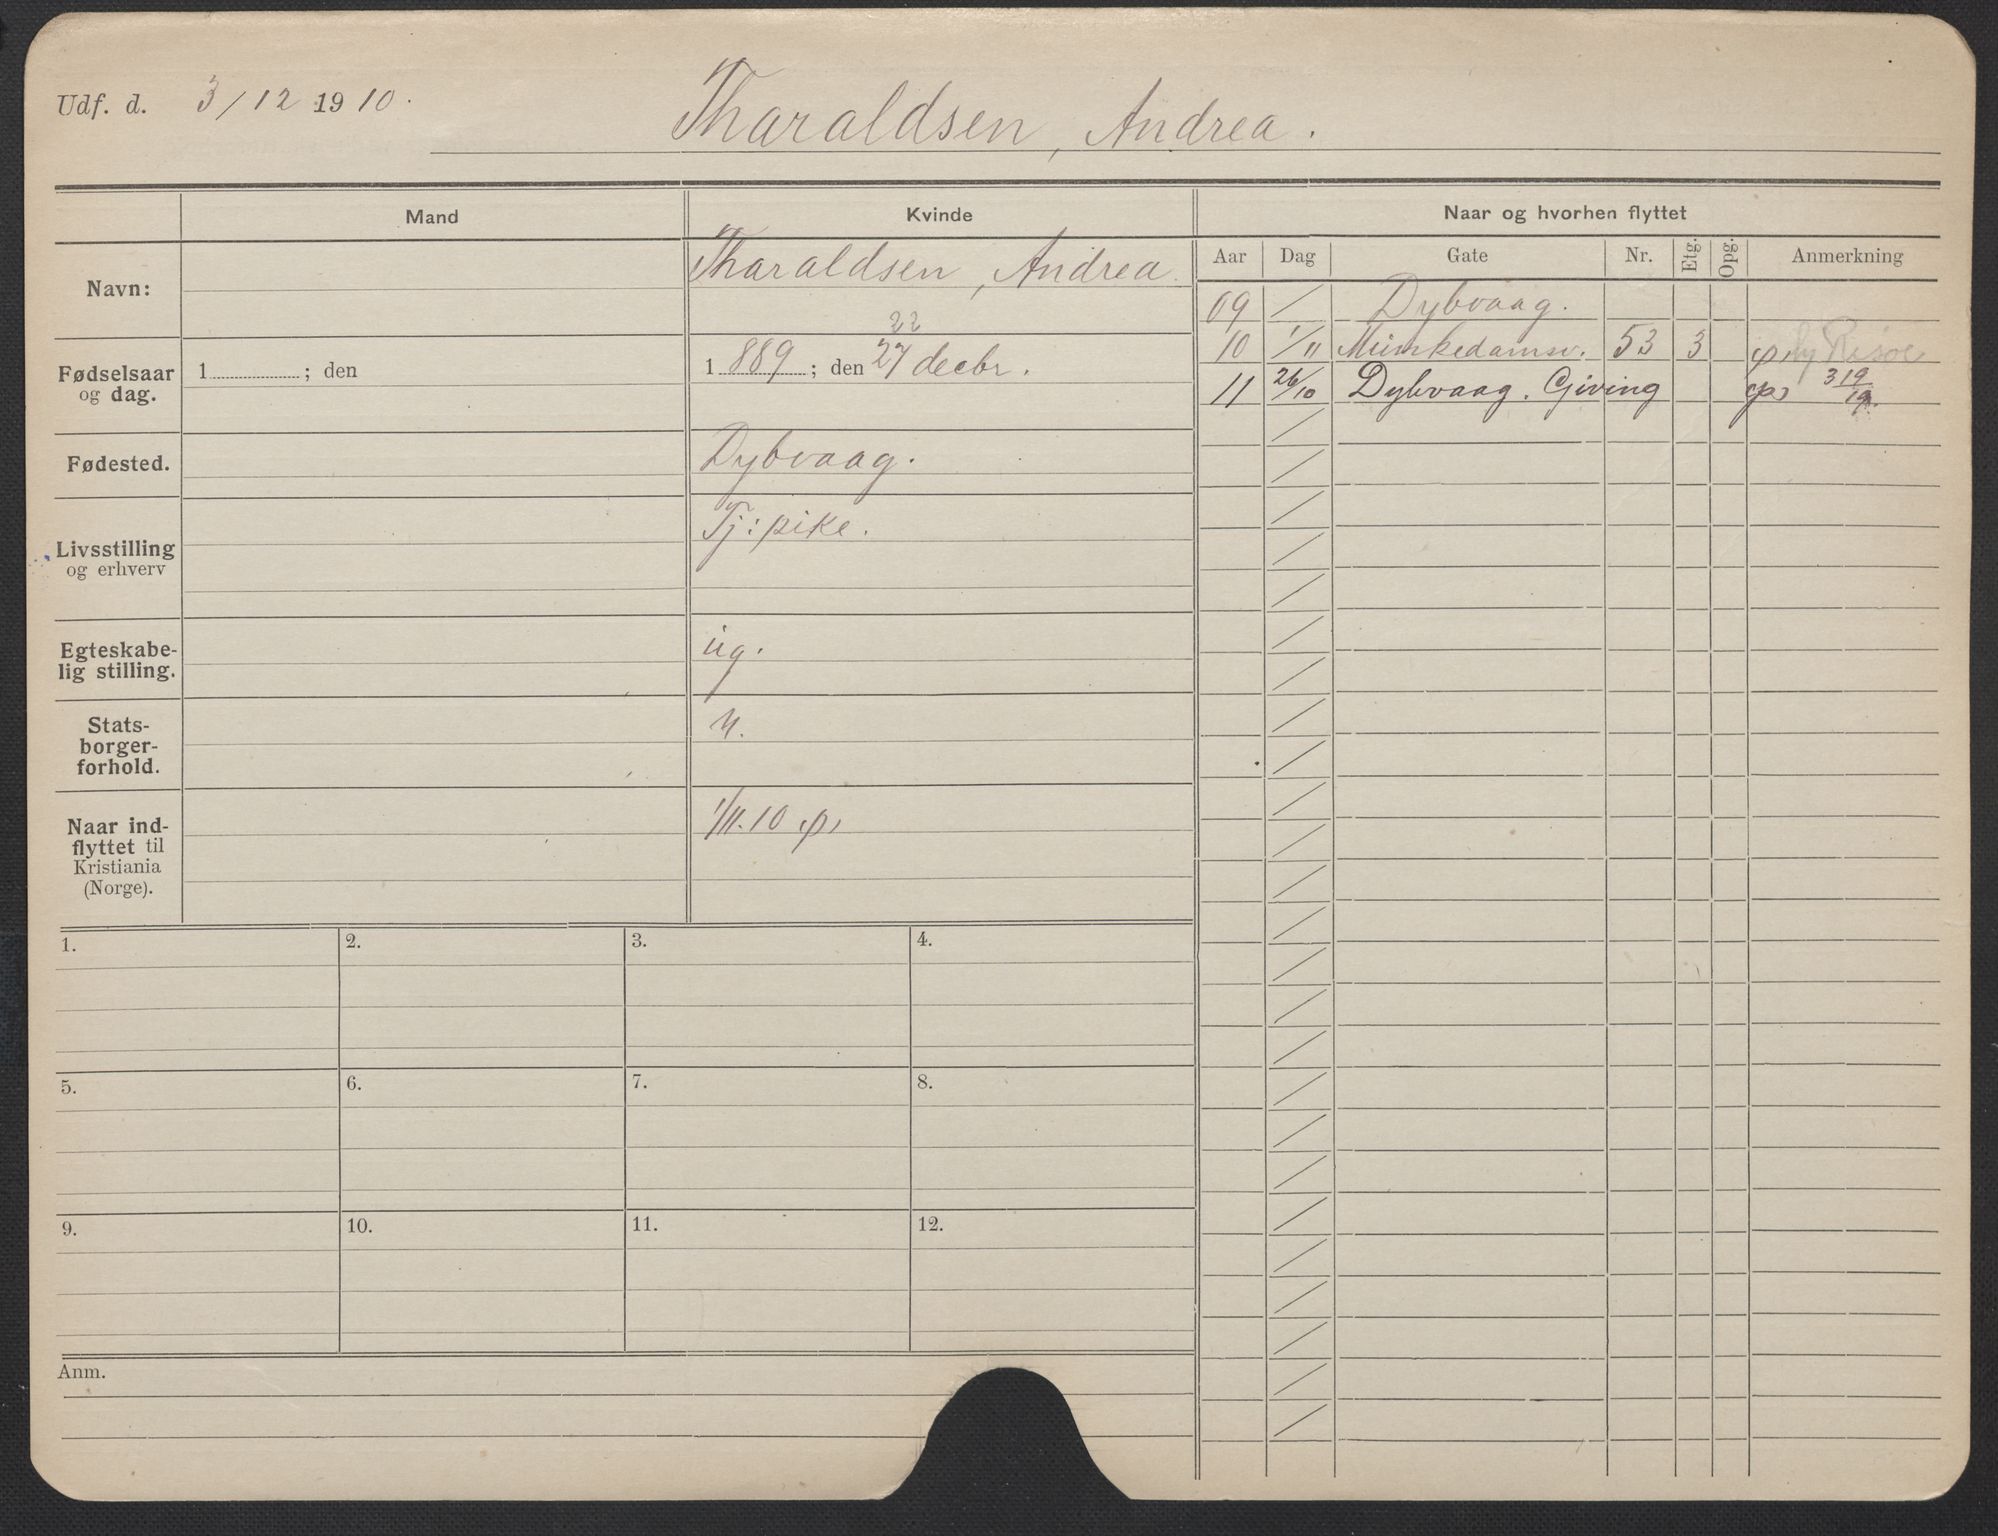 Udf. d. 3/12 1910.
Tharaldsen, Andrea.
Mand
Kvinde
Naar og hvorhen flyttet
Aar Dag Gate Nr. Etg. Opg. Anmerkning
Navn:
Tharaldsen, Andrea.
09 / Dybvaag.
10 1/11 Munkedamsv. 53 3 Risør
11 26/10 Dybvaag. Giving 319/19
Fødselsaar og dag.
1 ; den
22
1 889 ; den 27 decbr.
Fødested.
Dybvaag.
Livsstilling og erhverv
Tj: pike.
Egteskabe-
lig stilling.
ug.
Stats-
borger-
forhold.
n.
Naar ind-
flyttet til
Kristiania
(Norge).
1/11.10
1. 2. 3. 4.
5. 6. 7. 8.
9. 10. 11. 12.
Anm.